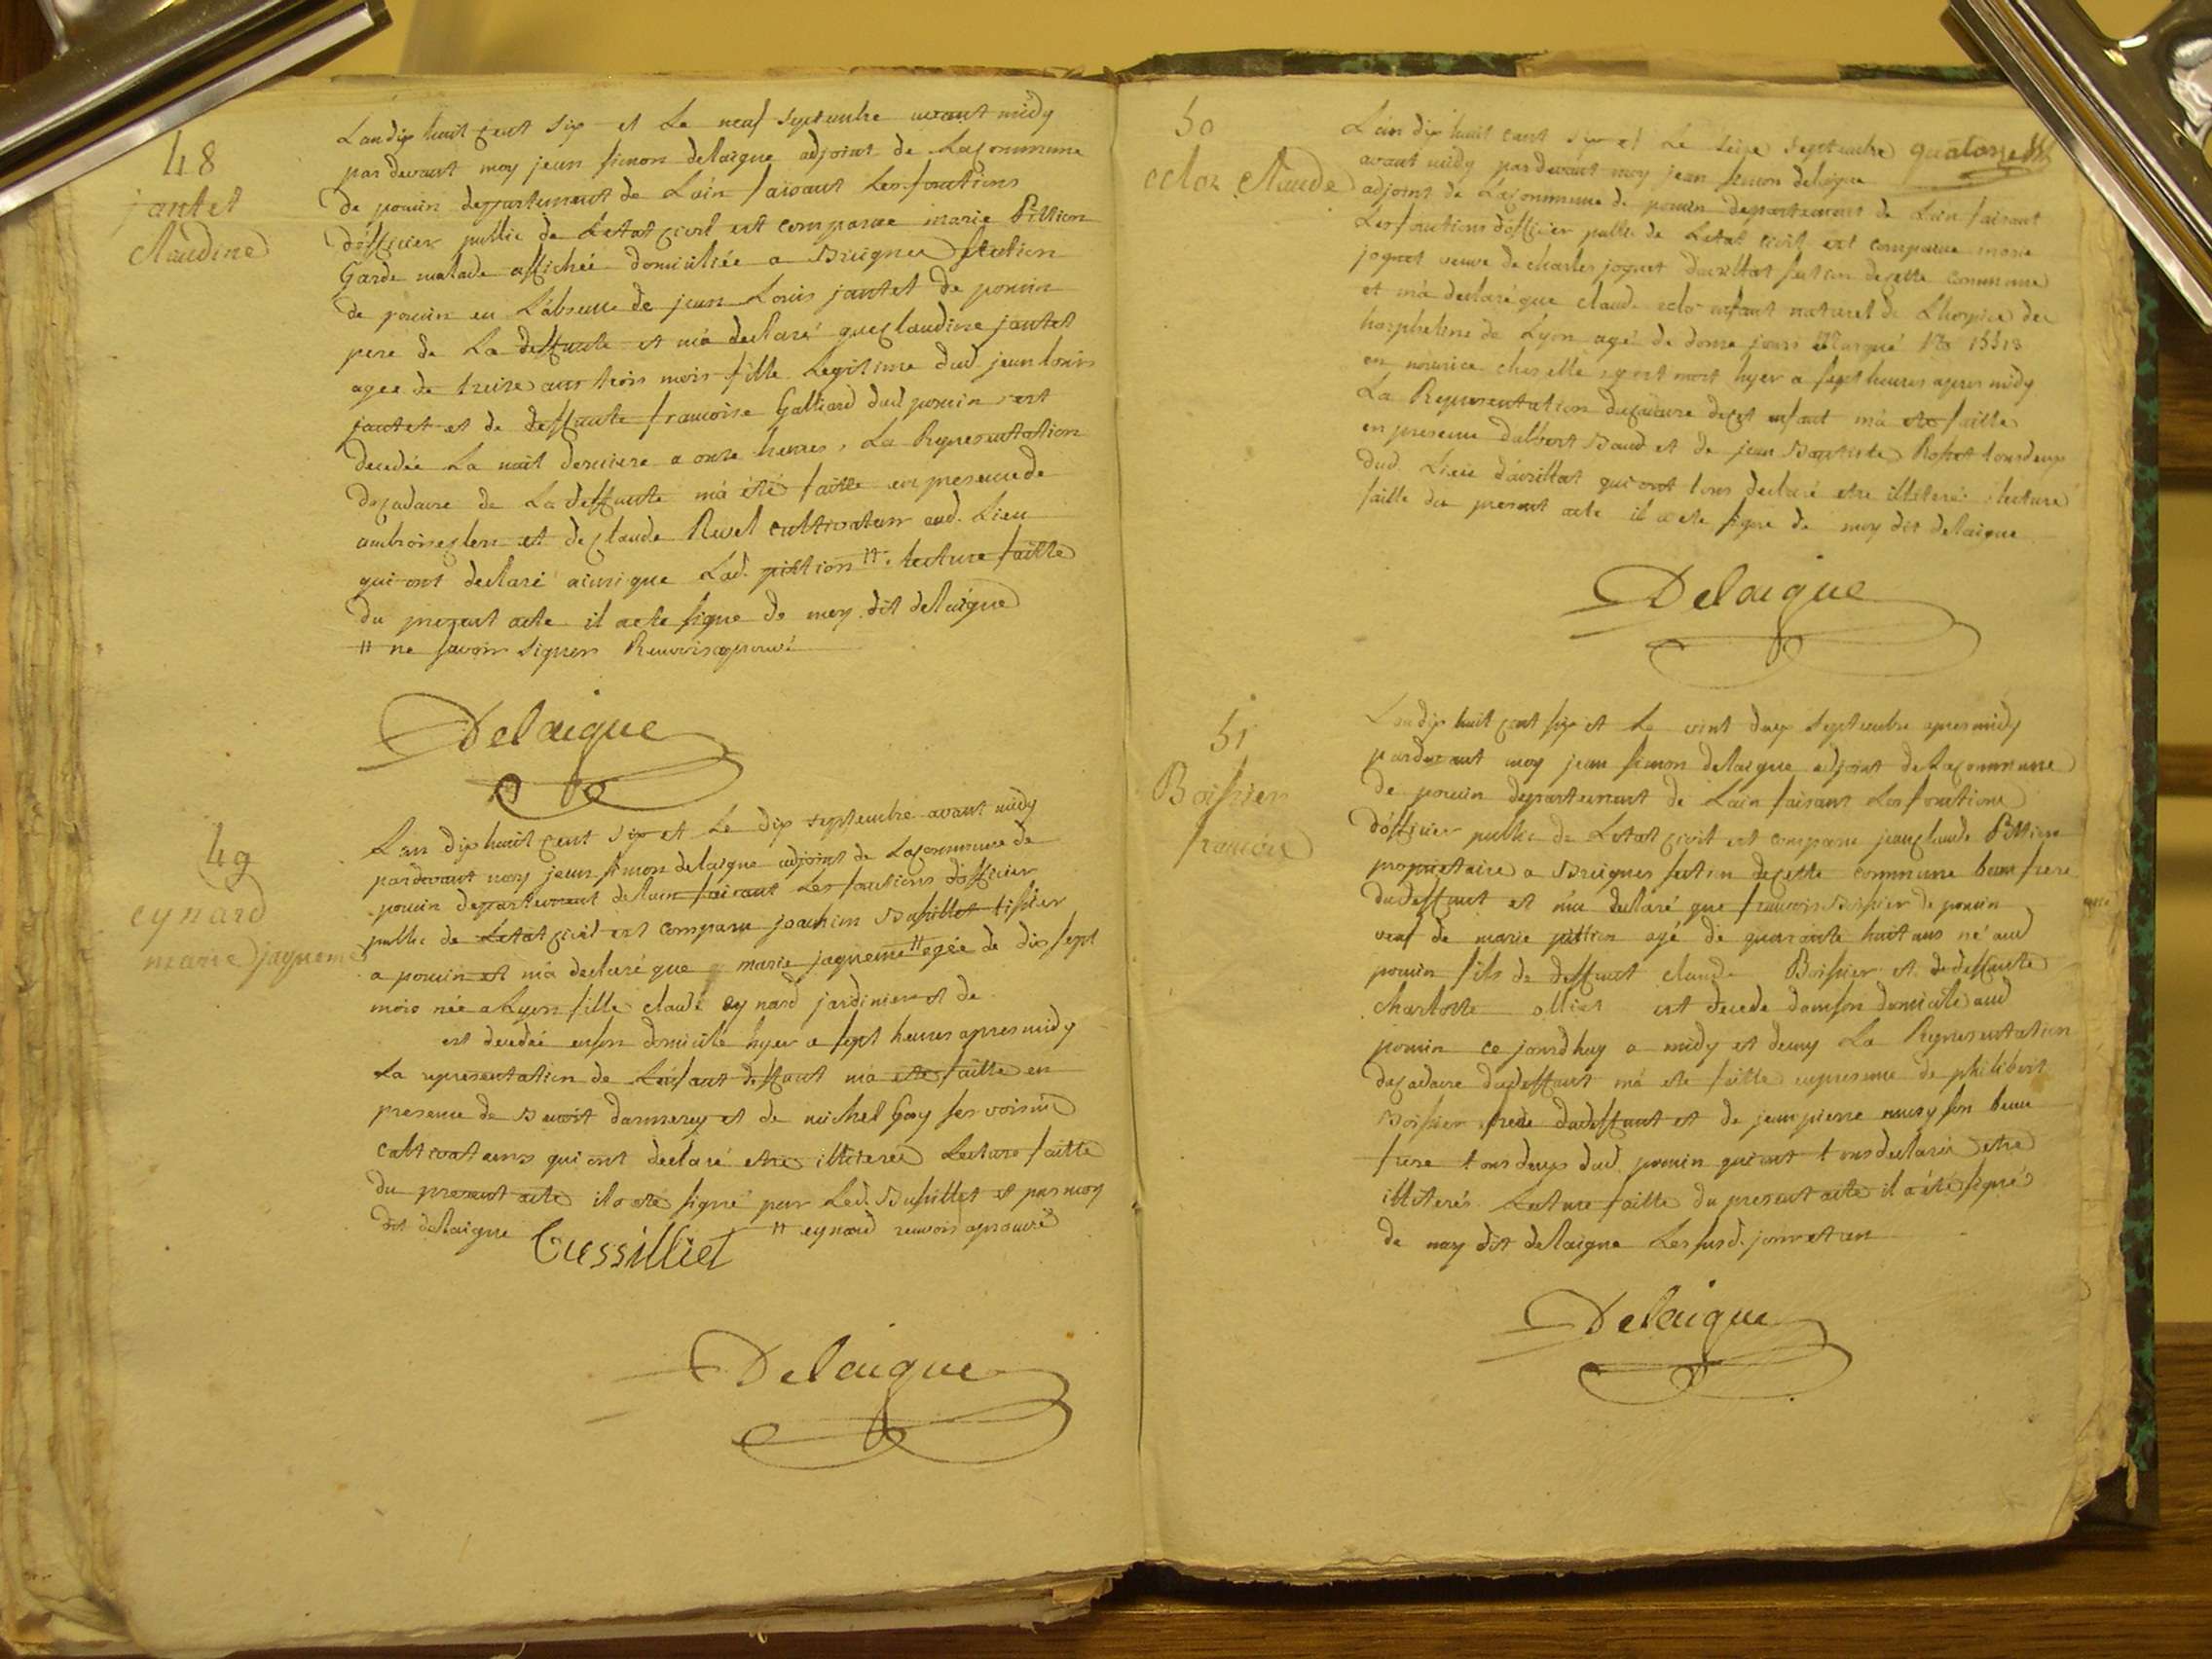 48
jantet
Claudine
Lan dix huit cent six et Le neuf septembre avant midy
par devant moy jean simon delaigue adjoint de Lacommune
de poncin departement de Lain faisant Les fonctions
d'officier public de Letat civil est comparue marie Pittion
Garde malade affichée domiciliée a Breignes section
de poncin en Labsence de jean Louis jantet de poncin
pere de La deffunte et m'a declaré que claudine jantet
agee de treize ans trois mois fille Legitime dud jean louis
jantet et de deffunte francoise Galliard dud poncin est
decedée La nuit derniere a onze heures, La Representation
du cadavre de La deffunte m'a été faitte en presence de
ambroise et de claude Revel cultivateur aud. Lieu
qui ont declaré ainsi que Lad. pittion #. lecture faitte
du present acte il a ete signe de moy dit delaigue
# ne savoir signer Renvoi aprouvé
Delaigue
49
eynard
marie jaqueme
Lan dix huit cent six et Le dix septembre avant midy
pardevant moy jean simon delaigue adjoint de Lacommune de
poncin departement delain faisant Les fonctions d'officier
public de Letat civil est comparu joachim Bussillet tissier
a poncin et m'a declaré que marie jaqueme # agée de dix sept
mois née a Lyon fille claude eynard jardinier et de
est decedée en son domicile hyer a sept heures apres midy
La representation de Lenfant deffunt m'a ete faitte en
presence de Benoit darmerey et de michel Gay ses voisins
cultivateurs qui ont declaré etre illiterés Lecture faitte
du present acte il a ete signé par Led. Bussillet et par moy
dit delaigue # eynard renvoi aprouvé
Bussilliet
Delaigue
50
eclos Claude
Lan dix huit cent six et Le seize septembre quatorze
avant midy pardevant moy jean simon delaigue
adjoint de Lacommune de poncin departement de Lain faisant
Les fonctions d'officier public de Letat civil est comparue marie
joguet veuve de charles joguet d'avrillat section de cette commune
et m'a declaré que claude eclos enfant naturel de Lhospice des
horphelins de Lyon agé de douze jours Marqué No 15513
en nourice ches elle est mort hyer a sept heures apres midy
La Representation du cadavre de cet enfant m'a ete faitte
en presence d'albert Baud et de jean Baptiste Rosset tous deux
dud. Lieu d'avrillat qui ont tous declaré etre illiteré lecture
faitte du present acte il a ete signe de moy dit delaigue
Delaigue
51
Boissier
francois
Lan dix huit cent six et Le vint deux septembre apres midy
pardevant moy jean simon delaigue adjoint de Lacommune
de poncin departement de Lain faisant Les fonctions
d'officier public de Letat civil est comparu jean claude Pittion
propriétaire a Breignes section de cette commune beau frere
du deffunt et m'a declaré que francois Boissier de poncin
veuf de marie pittion agé de quarante huit ans né aud
poncin fils de deffunt claude Boissier et de deffunte
charlotte ollier est decede dans son domicile aud
poncin ce jourdhuy a midy et demy La Representation
du cadavre du deffunt m'a ete faitte en presence de philibert
Boissier frere du deffunt et de jean pierre mury son beau
frere tous deux dud. poncin qui ont tous declaré etre
illiterés Lecture faitte du present acte il a été signé
de moy dit delaigue Les susd. jour et an
Delaigue